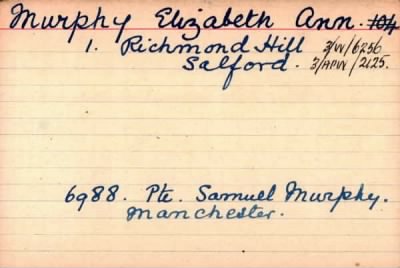 Murphy Elizabeth Ann. 104
1. Richmond Hill 3/W/6256
Salford. 3/APW/2125.
6988. Pte. Samuel Murphy.
Manchester.